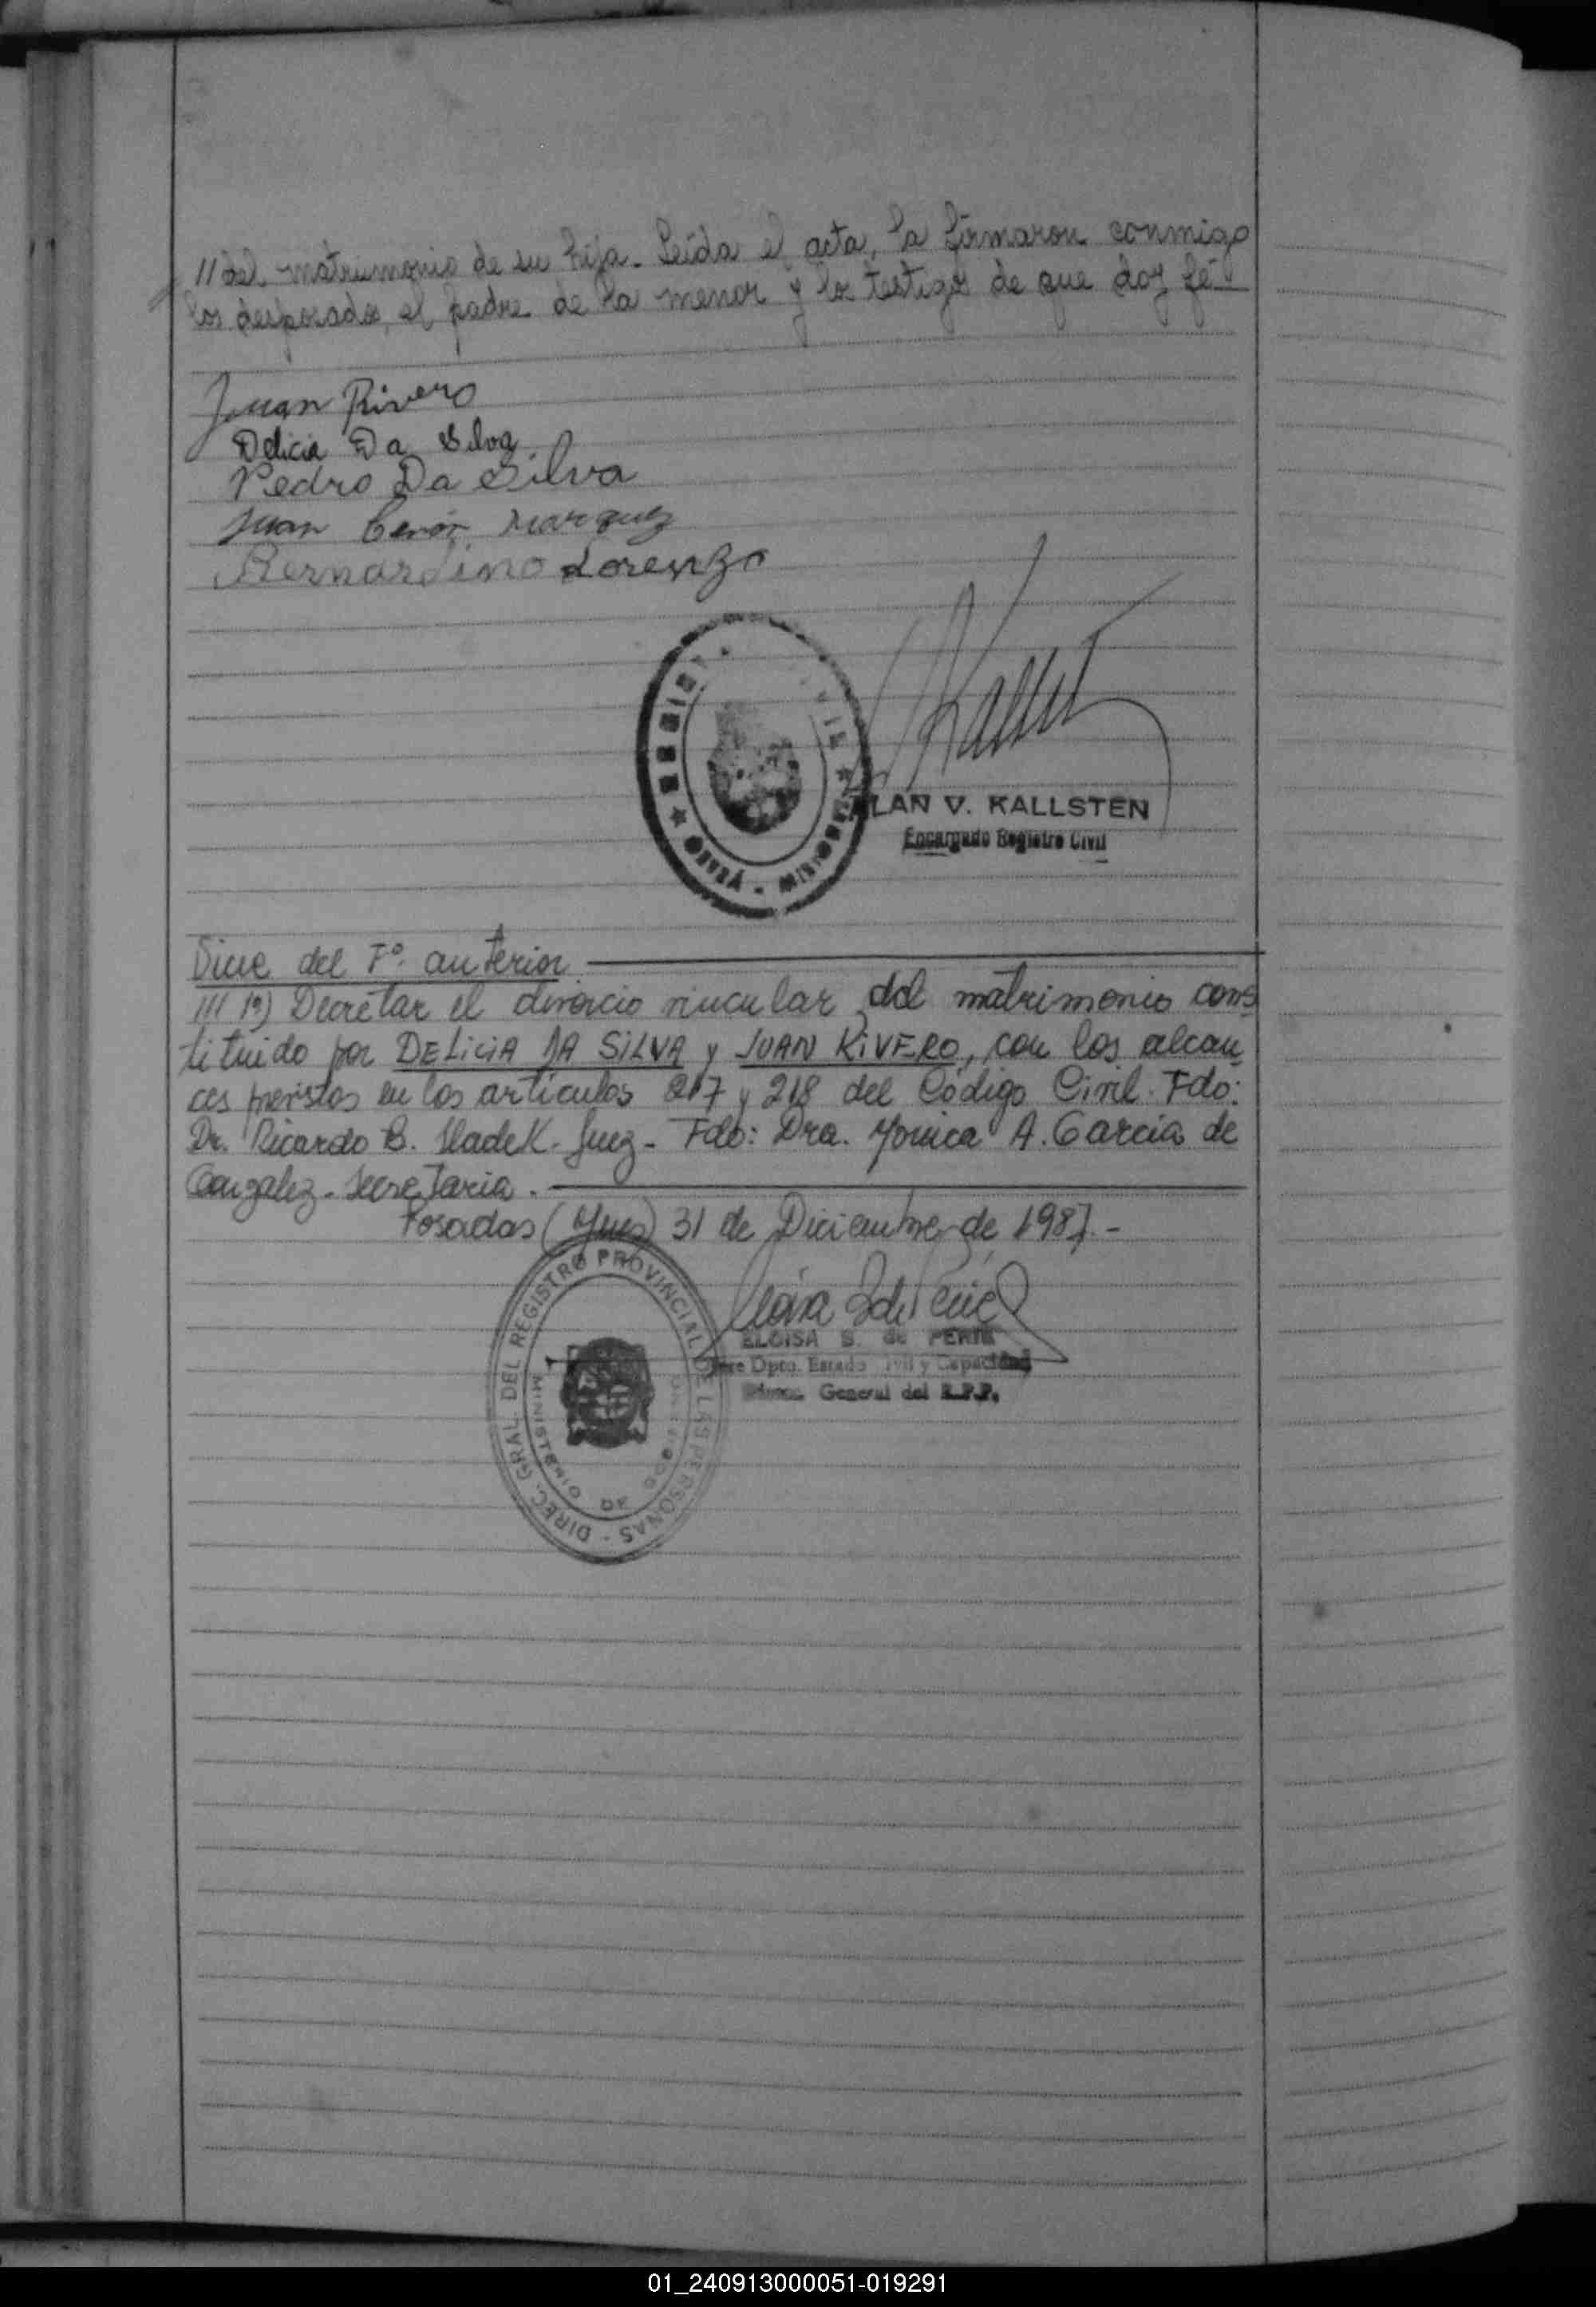 // del matrimonio de su hija. Leída el acta, la firmaron conmigo
los desposados, el padre de la menor y los testigos de que doy fé
Juan Rivero
Delicia Da Silva
Pedro Da Silva
Juan Marquez
Bernardino Lorenzo
★ OBERÁ - MISIONES ★
ALAN V. KALLSTEN
Encargado Registro Civil
Viene del Fº anterior
/// 1º) Decretar el divorcio vincular del matrimonio cons
tituido por DELICIA DA SILVA y JUAN RIVERO, con los alcan
ces previstos en los artículos 217 y 218 del Código Civil. Fdo:
Dr. Ricardo B. Juez - Fdo: Dra. A. Garcia de
Gonzalez - Secretaria.
Posadas (Mnes) 31 de Diciembre de 1987.-
DIREC. GRAL. DEL REGISTRO PROVINCIAL DE LAS PERSONAS -
MINISTERIO DE GOBIERNO
ELOISA S. de PERIE
Jefe Dpto. Estado Civil y Capacidad
General del R.P.P.
01_240913000051-019291